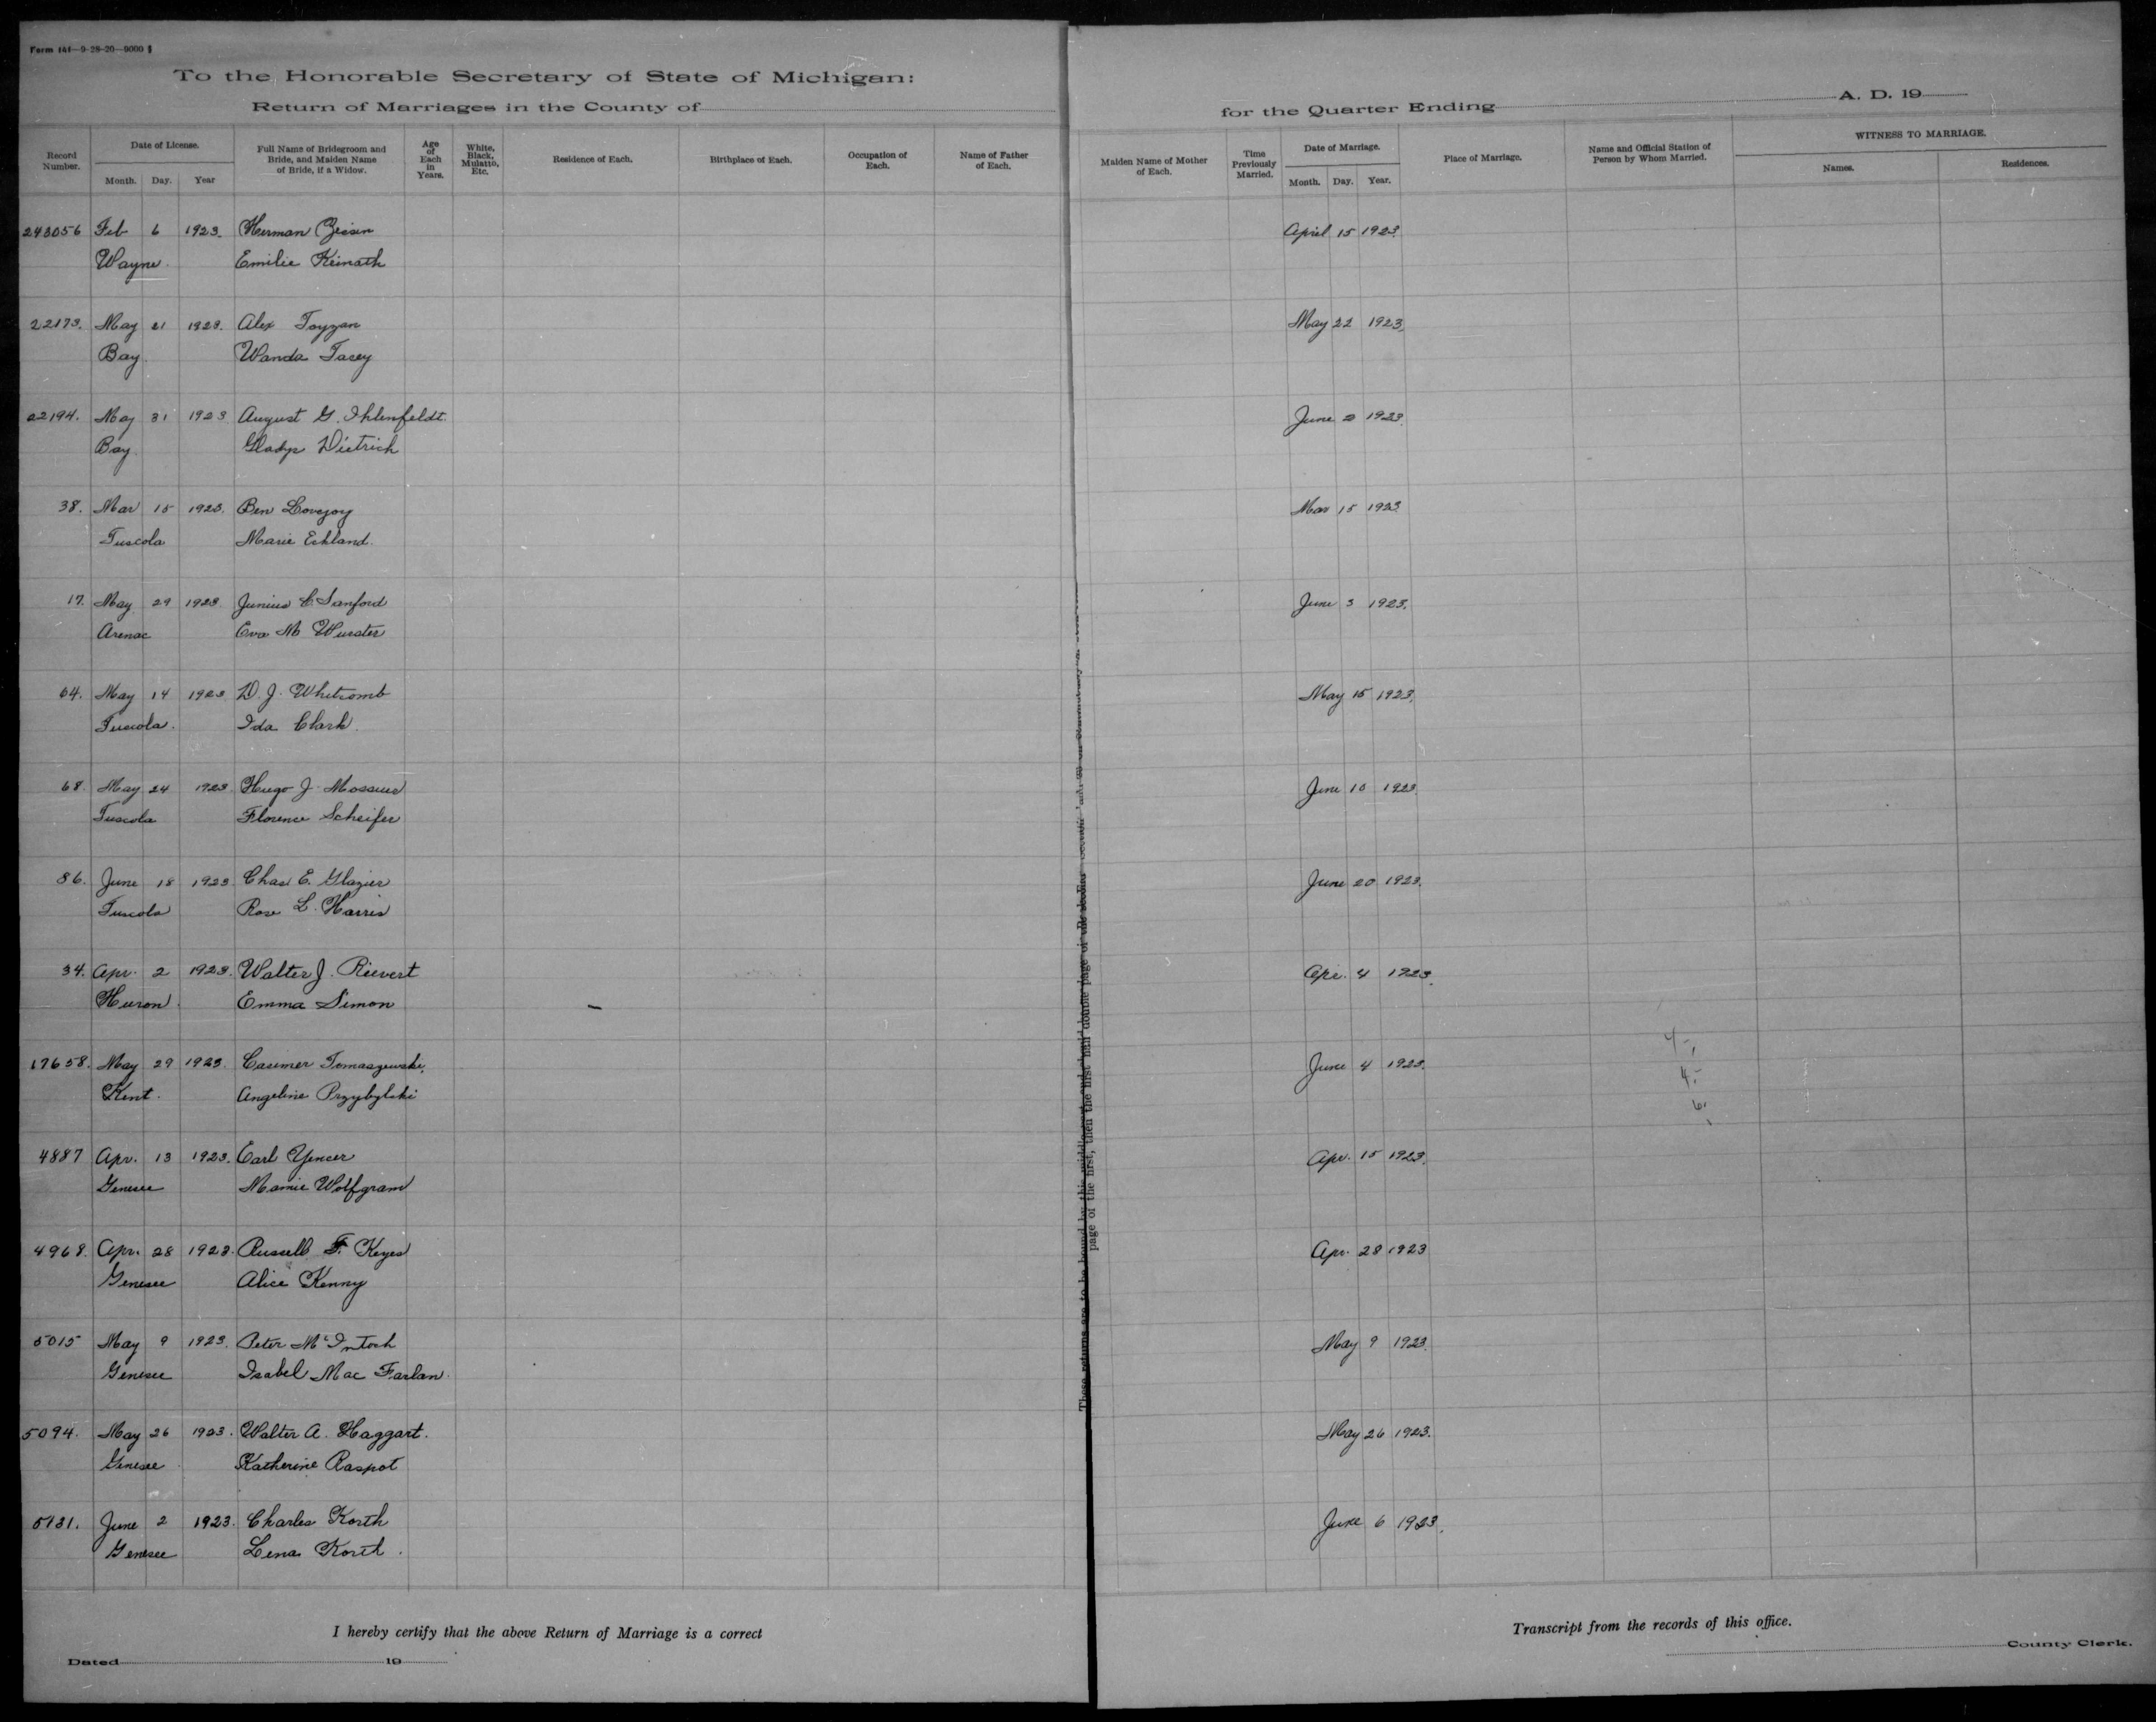 Form 141—9-28-20—9000
To the Honorable Secretary of State of Michigan:
Return of Marriages in the County of
for the Quarter Ending A. D. 19
Record Number. Date of License. Month. Day. Year Full Name of Bridegroom and Bride, and Maiden Name of Bride, if a Widow. Age of Each in Years. White, Black, Mulatto, Etc. Residence of Each. Birthplace of Each. Occupation of Each. Name of Father of Each. Maiden Name of Mother of Each. Time Previously Married. Date of Marriage. Month. Day. Year. Place of Marriage. Name and Official Station of Person by Whom Married. WITNESS TO MARRIAGE. Names. Residences.
243056 Feb 6 1923. Herman April 15 1923.
Wayne. Emilie Keinath
22173. May 21 1923. Alex Toyzan May 22 1923.
Bay. Wanda Tacey
22194. May 31 1923 August G. Ihlenfeldt. June 2 1923.
Bay. Gladys Dietrich
38. Mar 15 1923. Ben Lovejoy Mar 15 1923.
Tuscola Marie Eckland.
17. May 29 1923. Junius C. Sanford June 3 1923.
Arenac Eva M Wurster
64. May 14 1923 D. J. Whitcomb May 15 1923.
Tuscola. Ida Clark.
68. May 24 1923. Hugo J. Mossner June 10 1923.
Tuscola Florence Scheifer
86. June 18 1923 Chas E. Glazier June 20 1923.
Tuscola Rose L. Harris
34. Apr. 2 1923. Walter J. Rievert Apr. 4 1923.
Huron. Emma Simon
17658. May 29 1923. Casimer Tomaszewski. June 4 1923.
Kent. Angeline Przybylski
4887 Apr. 13 1923. Earl Yencer Apr. 15 1923.
Genesee Mamie Wolfgram
4968. Apr. 28 1923. Russell F. Keyes Apr. 28 1923
Genesee Alice Kenny
5015 May 9 1923. Peter McIntosh May 9 1923.
Genesee Isabel Mac Farlan.
5094. May 26 1923. Walter A. Haggart. May 26 1923.
Genesee Katherine Raspot
5131. June 2 1923. Charles Korth June 6 1923.
Genesee Lena Korth.
I hereby certify that the above Return of Marriage is a correct
Transcript from the records of this office.
Dated 19
County Clerk.